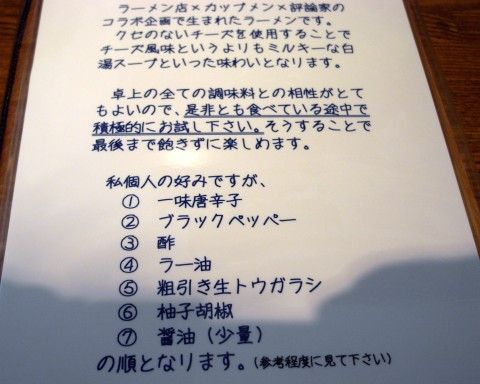 ラーメン店×カップメン×評論家の
コラボ企画で生まれたラーメンです。
クセのないチーズを使用することで
チーズ風味というよりもミルキーな白
湯スープといった味わいとなります。
卓上の全ての調味料との相性がとて
もよいので、是非とも食べている途中で
積極的にお試し下さい。そうすることで
最後まで飽きずに楽しめます。
私個人の好みですが、
① 一味唐辛子
② ブラックペッパー
③ 酢
④ ラー油
⑤ 粗引き生トウガラシ
⑥ 柚子胡椒
⑦ 醤油(少量)
の順となります。(参考程度に見て下さい)